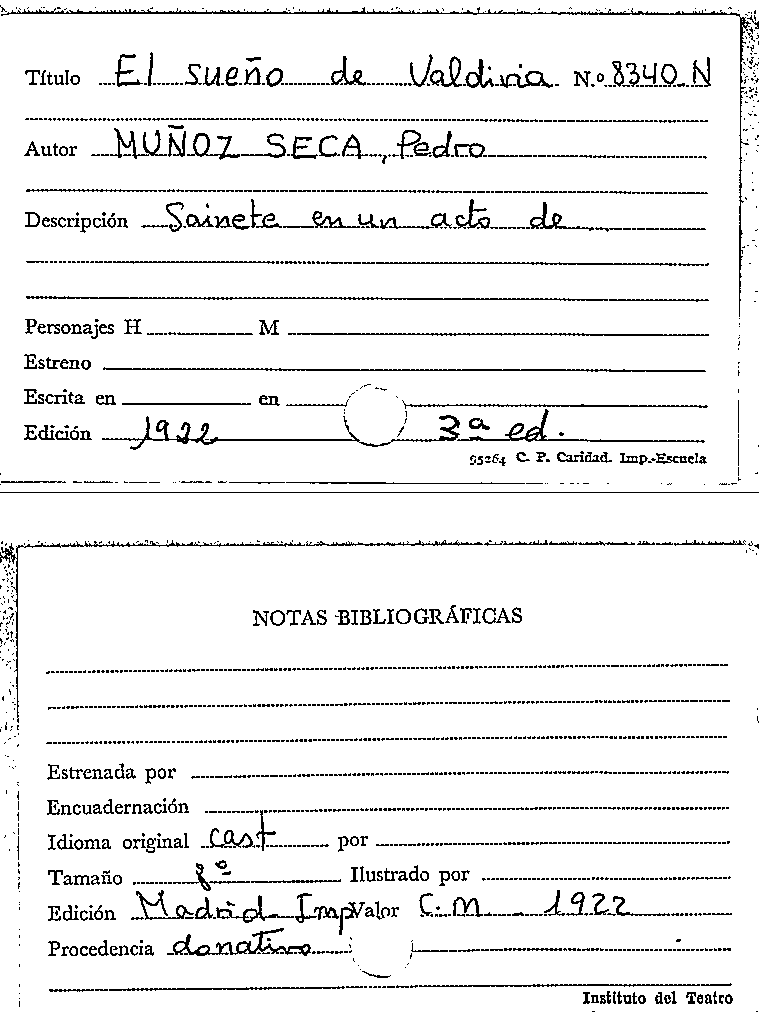 Título El sueño de Valdivia N.º 8340 N
Autor MUÑOZ SECA, Pedro
Descripción Sainete en un acto de
Personajes H M
Estreno
Escrita en en
Edición 1922 3ª ed.
95264 C. P. Caridad. Imp.-Escuela
NOTAS BIBLIOGRÁFICAS
Estrenada por
Encuadernación
Idioma original cast por
Tamaño 8º Ilustrado por
Edición Madrid Imp Valor C. M - 1922
Procedencia donativo
Instituto del Teatro